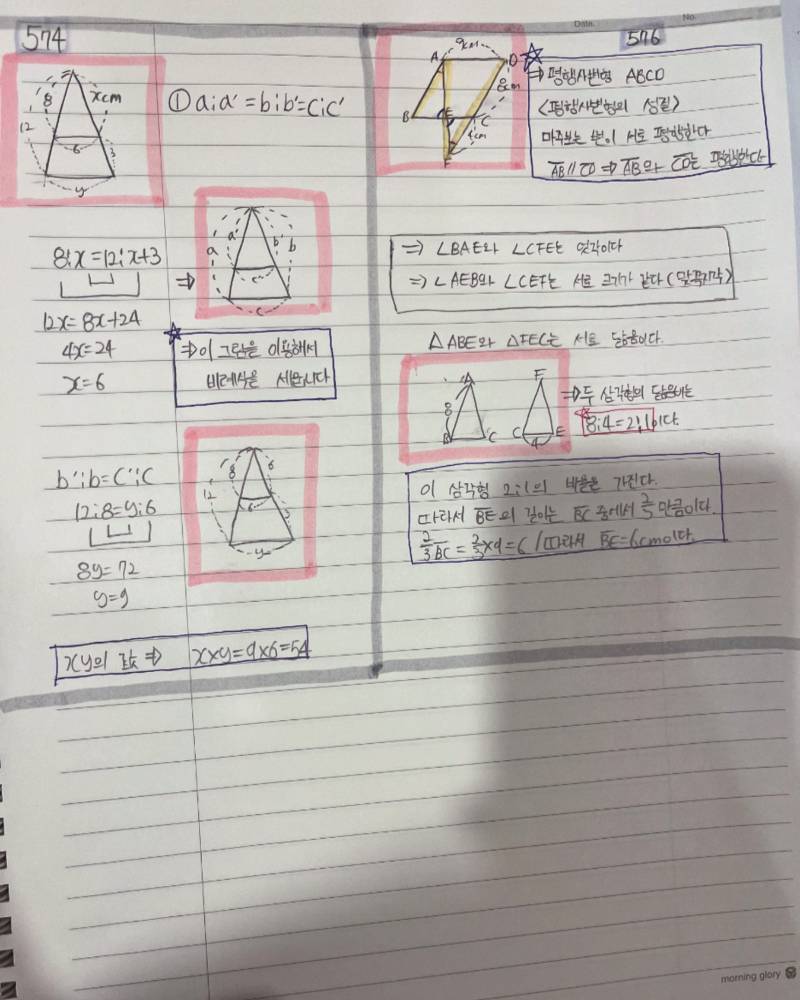 574
8
xcm
12
6
3
y
① a:a' = b:b' = c:c'
8:x = 12:x+3
⇒
a
a'
b'
b
c'
c
12x = 8x+24
4x = 24
x = 6
⇒ 이 그림을 이용해서
비례식을 세웁니다
b':b = c':c
12:8 = y:6
8y = 72
y = 9
8
6
12
6
3
y
xy의 값 ⇒ x×y = 9×6 = 54
Date.
No.
576
9cm
A
D
8cm
B
E
C
4cm
F
⇒ 평행사변형 ABCD
<평행사변형의 성질>
마주보는 변이 서로 평행한다
AB // CD ⇒ AB와 CD는 평행한다
⇒ ∠BAE와 ∠CFE는 엇각이다
⇒ ∠AEB와 ∠CEF는 서로 크기가 같다 (맞꼭지각)
△ABE와 △FEC는 서로 닮음이다.
A
8
B
C
F
C
E
4
⇒ 두 삼각형의 닮음비는
8:4 = 2:1이다.
이 삼각형 2:1의 비율을 가진다.
따라서 BE의 길이는 BC 중에서 2/3 만큼이다.
2/3 BC = 2/3 × 9 = 6 / 따라서 BE = 6cm이다.
morning glory